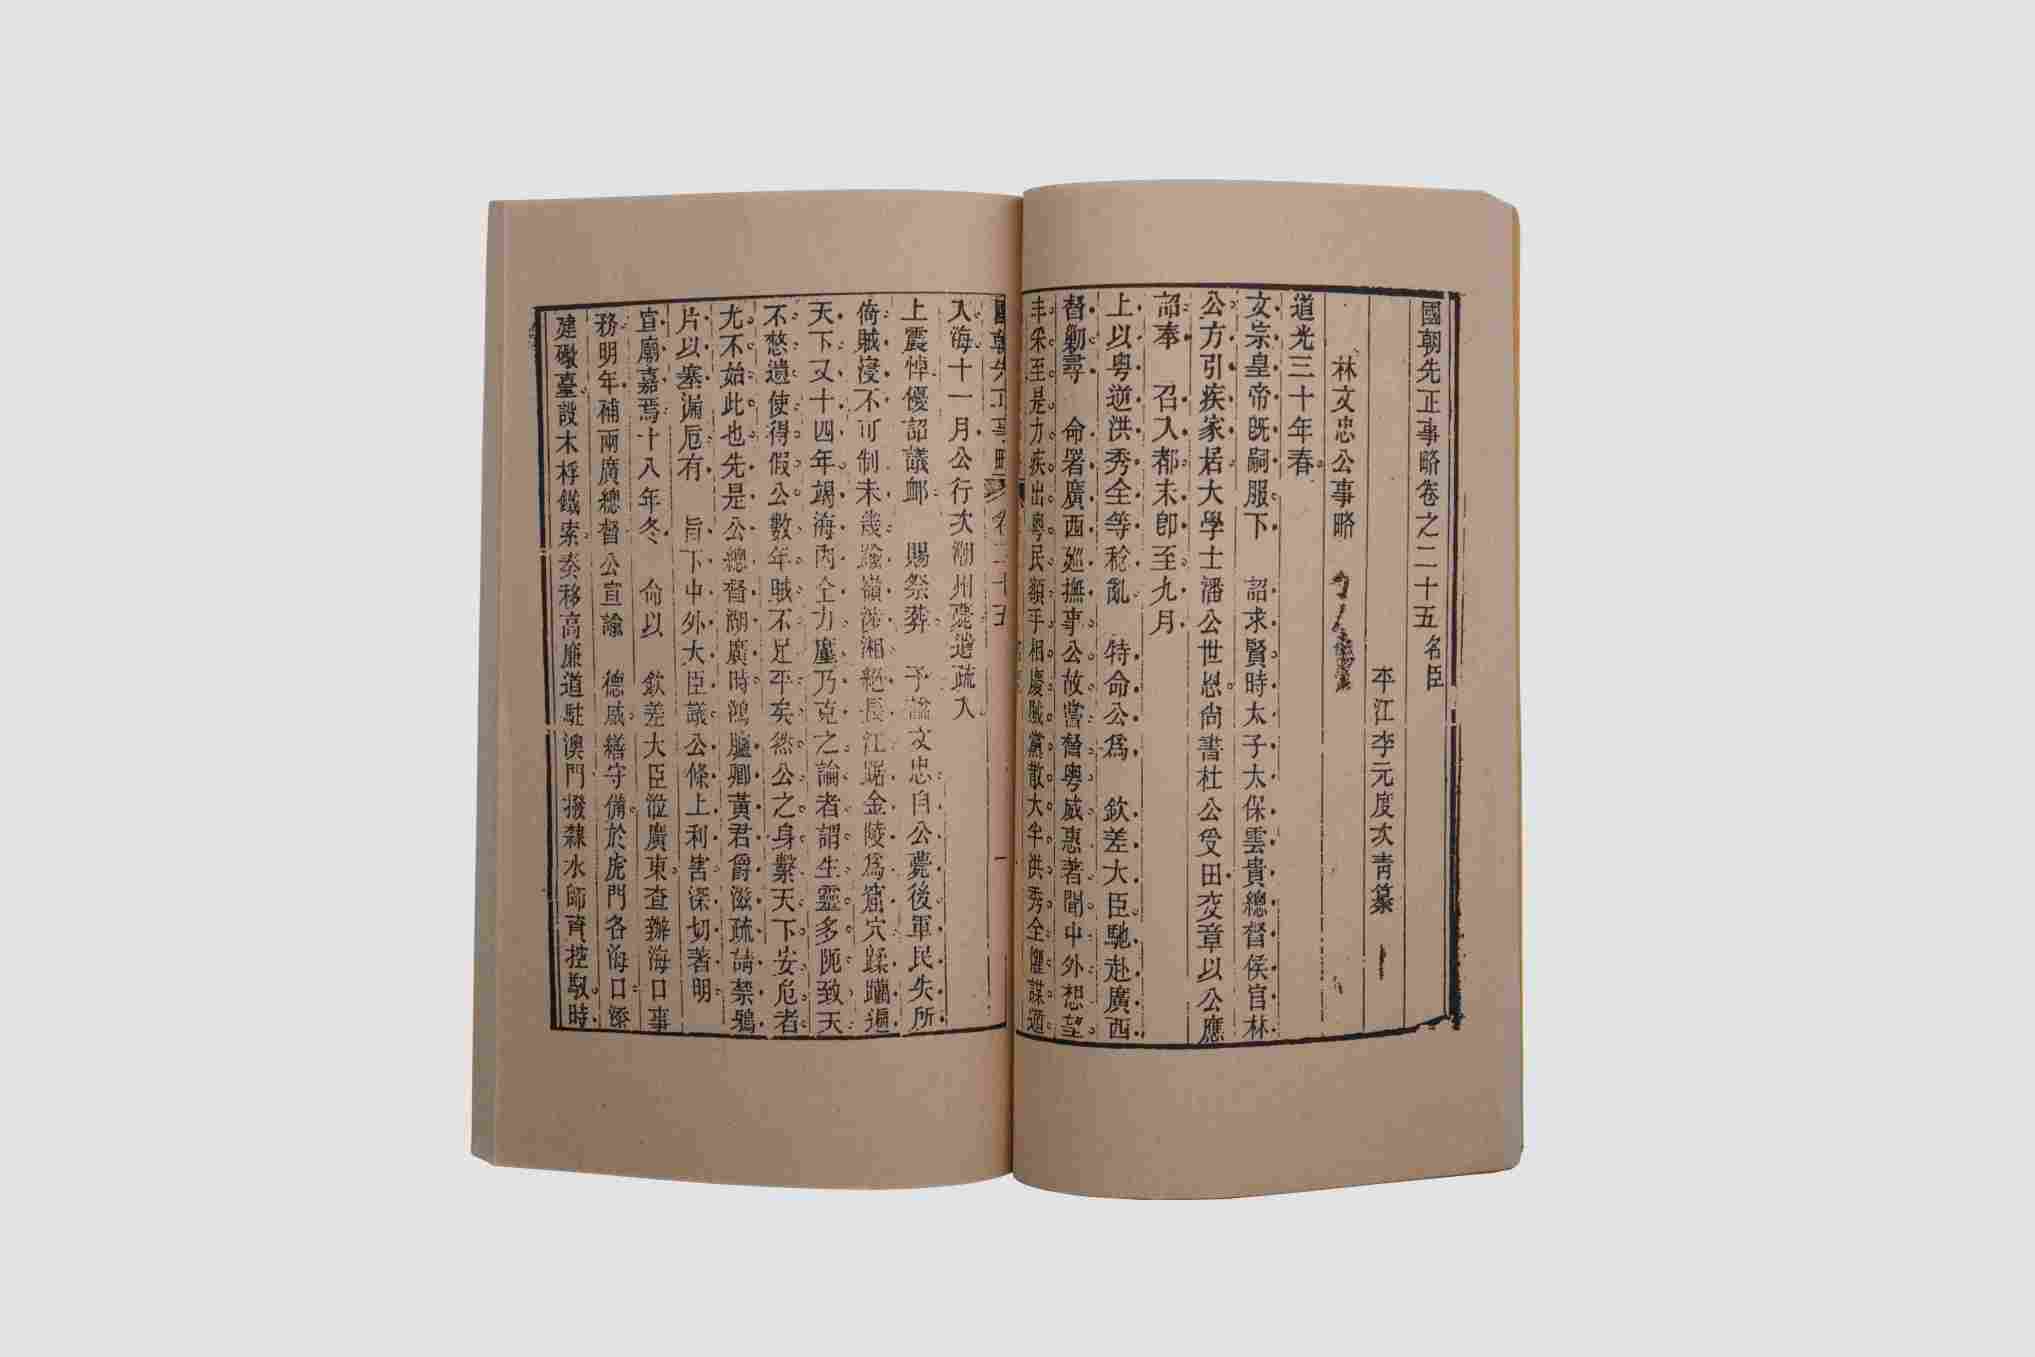 國朝先正事略卷之二十五 名臣
平江李元度次青纂
林文忠公事略
道光三十年春
文宗皇帝既嗣服下 詔求賢時太子太保雲貴總督侯官林
公方引疾家居大學士潘公世恩尚書杜公受田交章以公應
詔奉 召入都未卽至九月
上以粵逆洪秀全等稔亂 特命公爲 欽差大臣馳赴廣西
督勦尋 命署廣西廵撫事公故嘗督粵威惠著聞中外想望
丰采至是力疾出粵民額手相慶賊黨散大半洪秀全懼謀遁
國朝先正事略 卷二十五 一
入海十一月公行次潮州薨遺疏入
上震悼優詔議卹 賜祭葬 予諡文忠自公薨後軍民失所
倚賊寖不可制未幾踰嶺涉湘絕長江踞金陵爲窟穴蹂躪遍
天下又十四年竭海內全力鏖乃克之論者謂生靈多阨致天
不憗遺使得假公數年賊不足平矣然公之身繫天下安危者
尤不始此也先是公總督湖廣時鴻臚卿黃君爵滋疏請禁鴉
片以塞漏卮有 旨下中外大臣議公條上利害深切著明
宣廟嘉焉十八年冬 命以 欽差大臣涖廣東查辦海口事
務明年補兩廣總督公宣諭 德威繕守備於虎門各海口添
建礮臺設木桴鐵索奏移高廉道駐澳門撥隸水師資控馭時